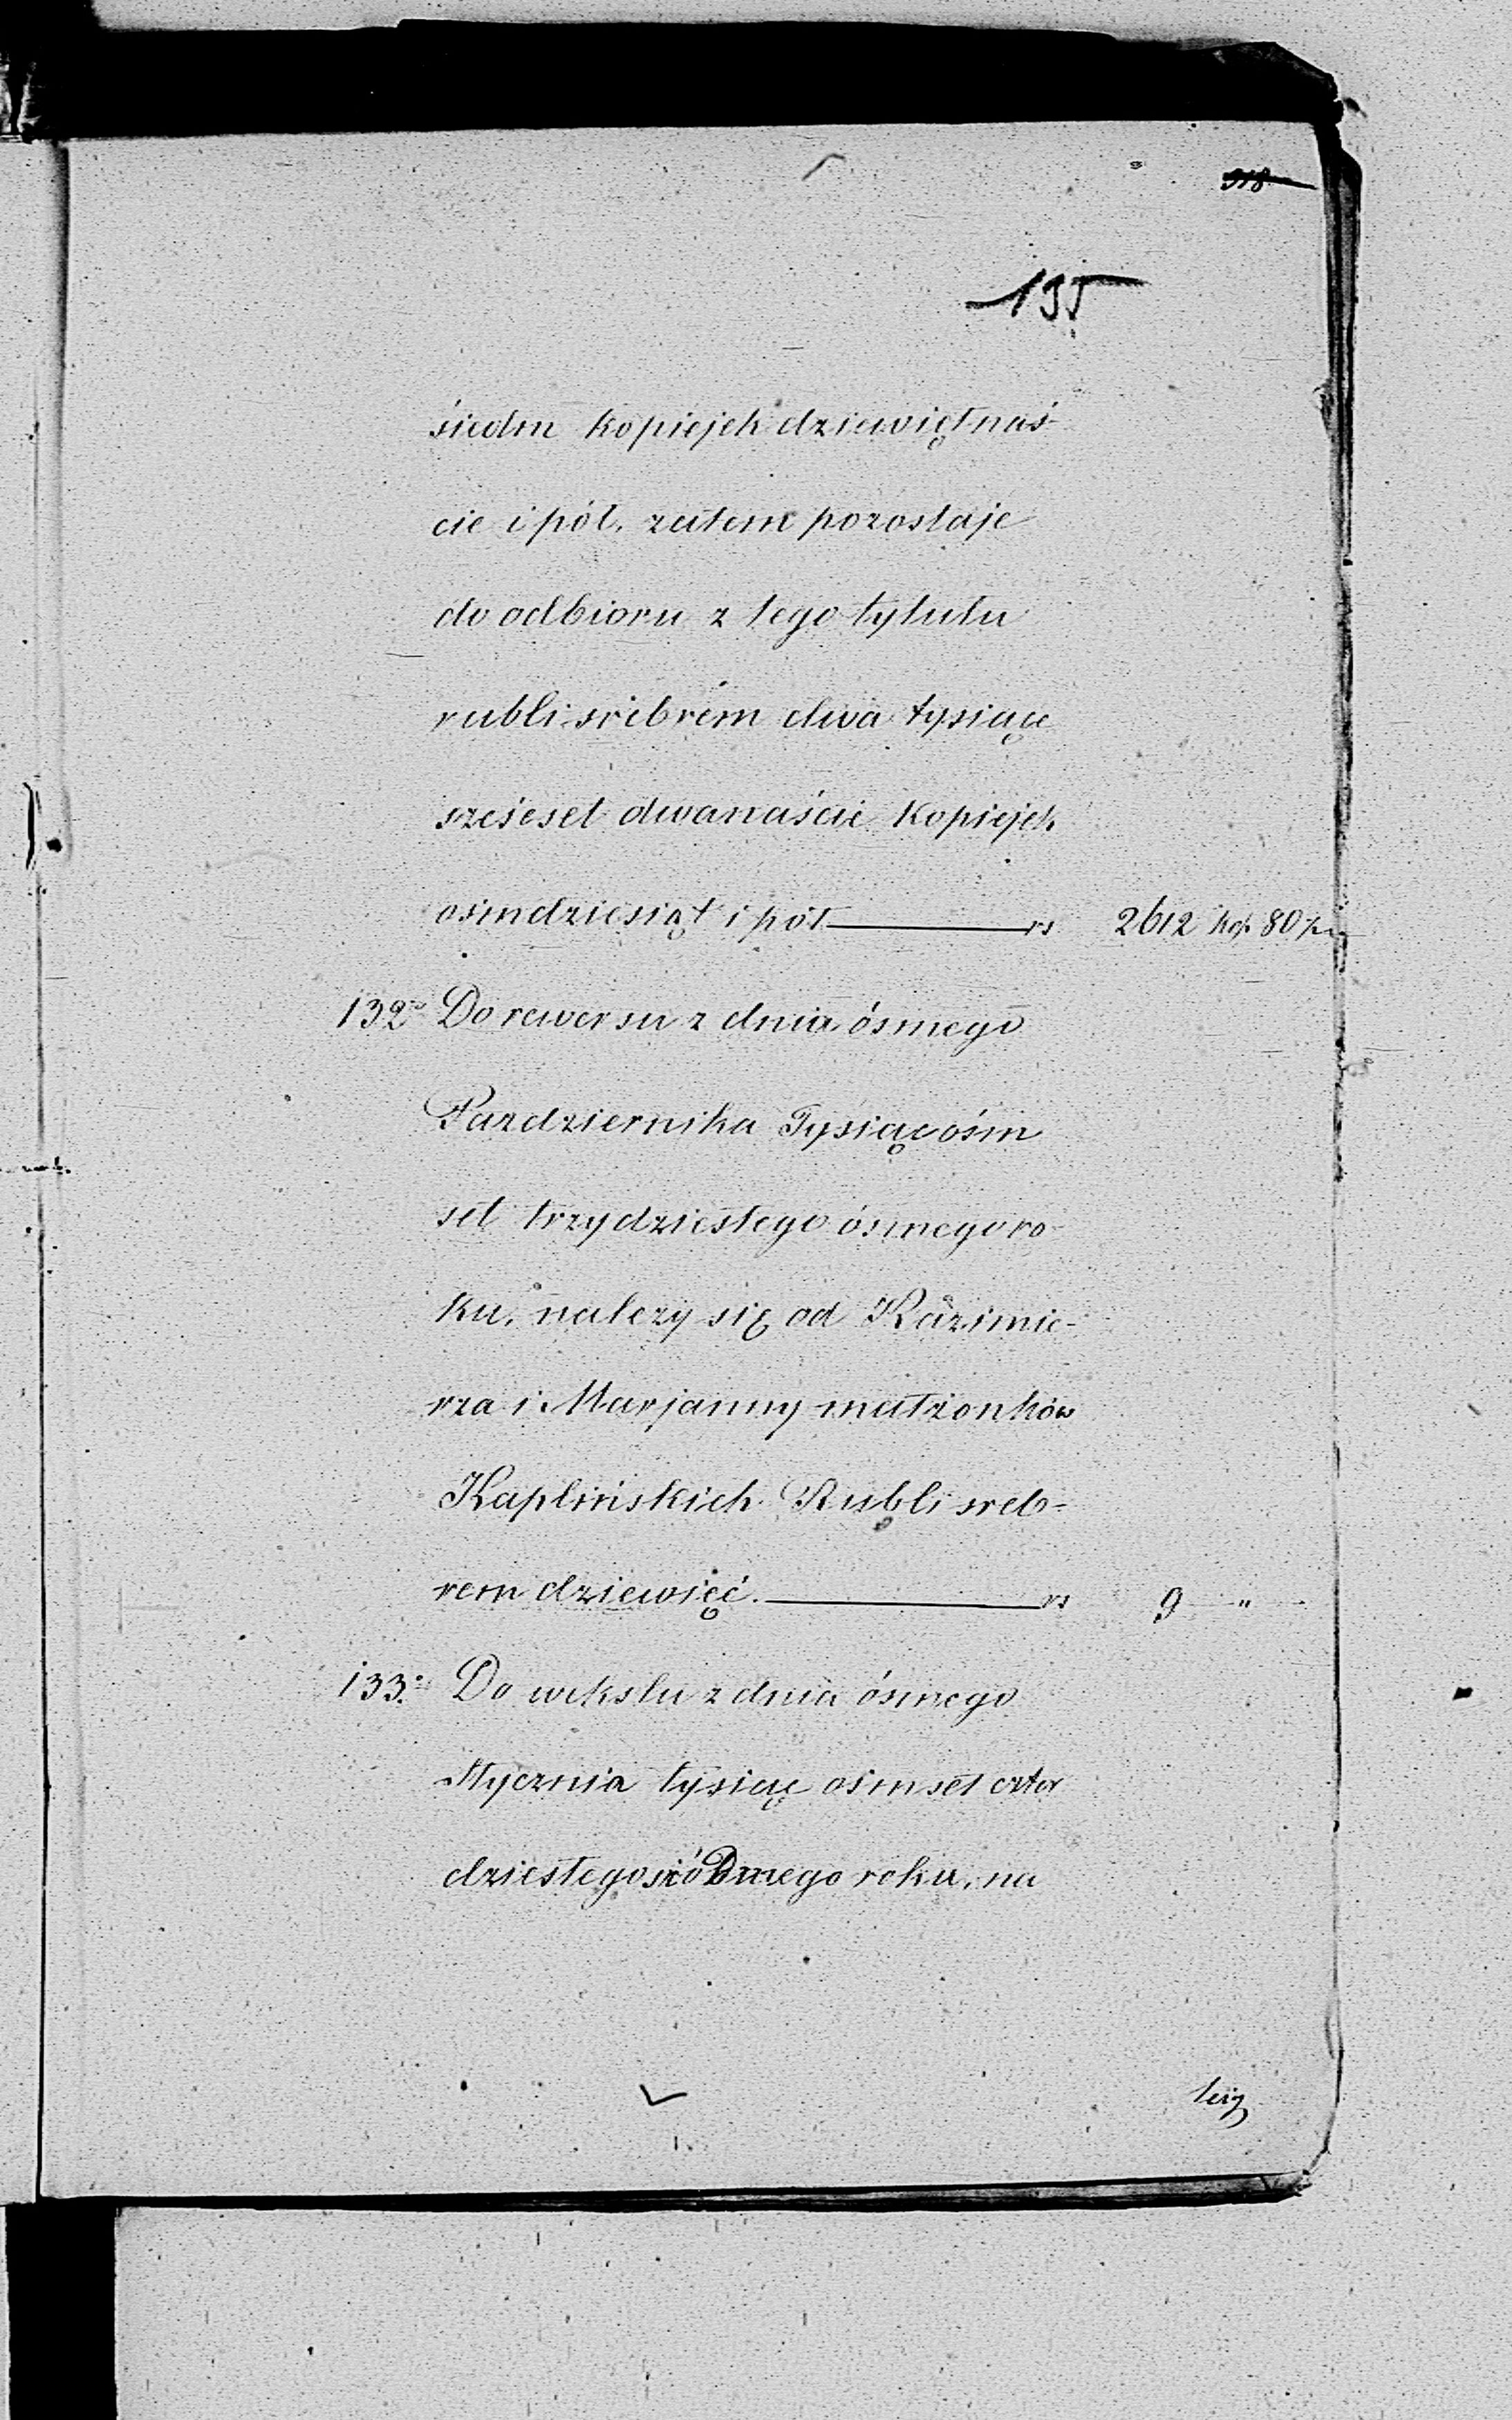 195
siedm kopiejek dziewiętnaś-
cie i pół, zatem pozostaje
do odbioru z tego tytułu
rubli srebrem dwa tysiące
sześćset dwanaście kopiejek
ośmdziesiąt i pół rs 2612 kop 80 ½
132° Do rewersu z dnia ósmego
Pazdziernika Tysiąc ośm
set trzydziestego ósmego ro-
ku, nalezy się od Kazimie-
rza i Marjanny małżonków
Kaplińskich Rubli sreb-
rem dziewięć. rs 9 "
133° Do wekslu z dnia ósmego
Stycznia tysiąc ośmset czter
dziestego siódmego roku, na